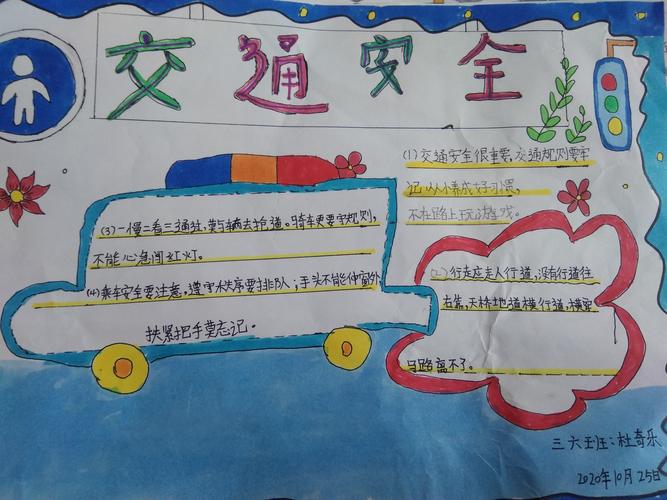 交通安全
(1)交通安全很重要,交通规则要牢
记,从小养成好习惯,
不在路上玩游戏。
(2)行走应走人行道,没有行道往
右靠,天桥地道横行道,横穿
马路离不了。
(3)一慢二看三通过,莫与车辆去抢道。骑车更要守规则,
不能心急闯红灯。
(4)乘车安全要注意,遵守秩序要排队;手头不能伸窗外
扶紧把手莫忘记。
三六班:杜奇乐
2020年10月25日